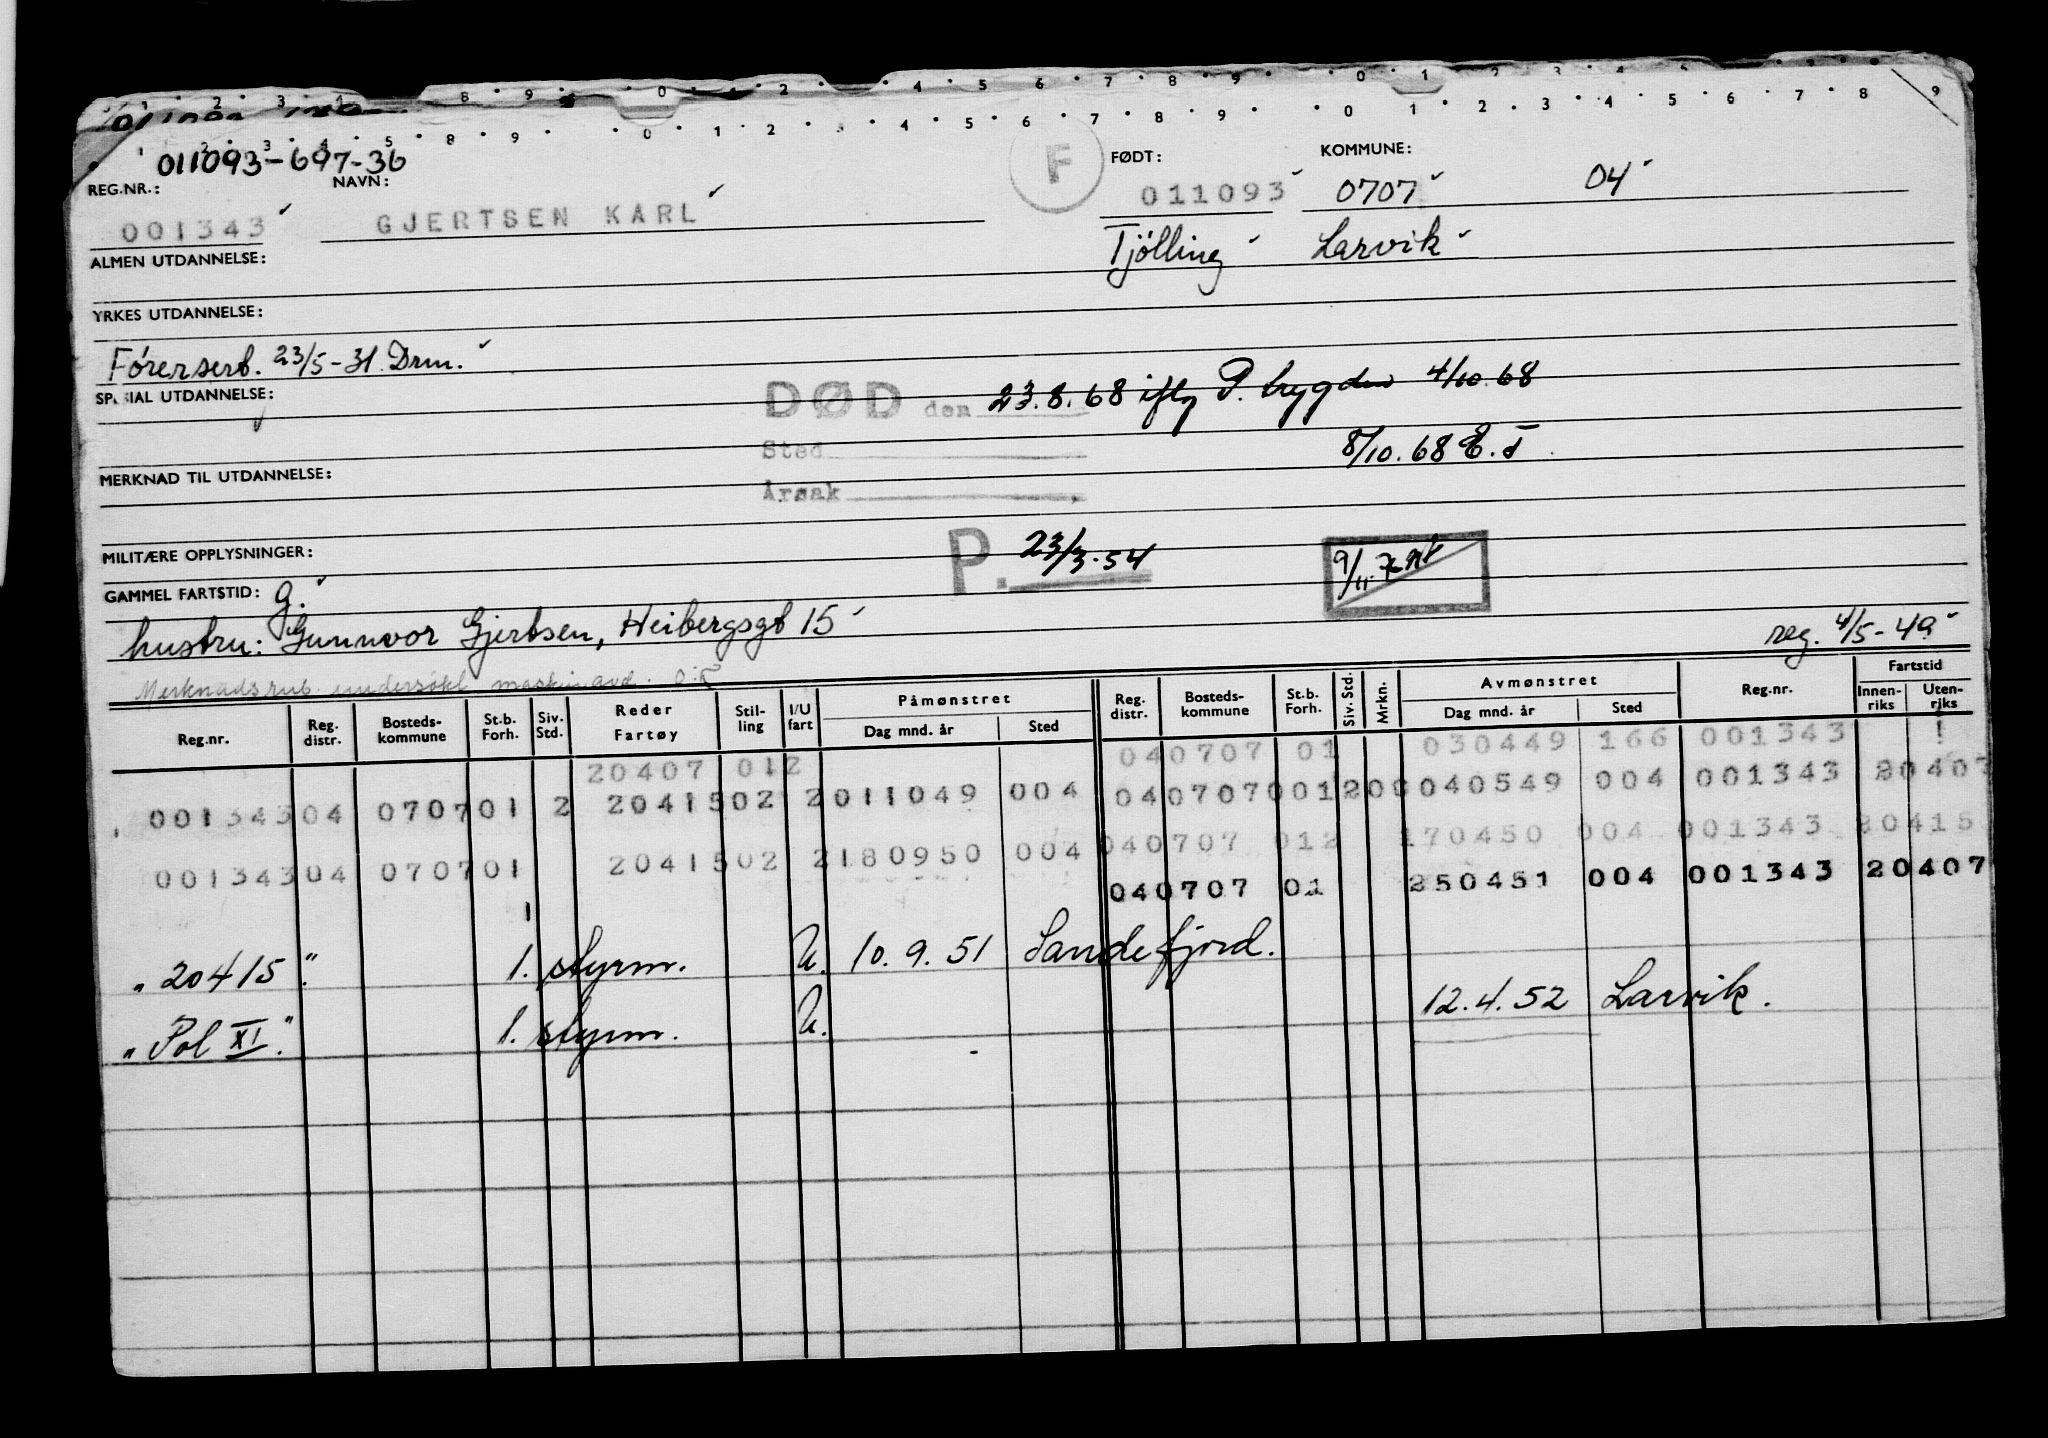 011093-697-36
REG.NR.: NAVN: F FØDT: KOMMUNE:
001343 GJERTSEN KARL 011093 0707 04
ALMEN UTDANNELSE: Tjölling Larvik
YRKES UTDANNELSE:
Førersert. 23/5-31. Drm.
SPESIAL UTDANNELSE: DØD den 23.8.68 iflg P. trygden 4/10.68
Sted 8/10.68 E.T
MERKNAD TIL UTDANNELSE: Årsak
MILITÆRE OPPLYSNINGER: P. 23/3.54 9/11
GAMMEL FARTSTID: g.
hustru: Gunnvor Gjertsen, Heibergsgt 15 reg. 4/5-49
Merknadsrub. undersøkt maskinavd.
Påmønstret Avmønstret Fartstid
Reg.nr. Reg. distr. Bosteds-kommune St.b. Forh. Siv. Std. Reder Fartøy Stil-ling I/U fart Dag mnd. år Sted Reg. distr. Bosteds-kommune St.b. Forh. Siv. Std. Mrkn. Dag mnd. år Sted Reg.nr. Innen-riks Uten-riks
20407 012 040707 01 030449 166 001343
001343 04 0707 01 2 20415 02 2 011049 004 040707001200 040549 004 001343 20407
040707 012 170450 004 001343 20415
001343 04 0707 01 20415 02 2 180950 004 040707 01 250451 004 001343 20407
1
"20415" 1. styrm. U. 10.9.51 Sandefjord.
"Pol XI." 1. styrm. U. 12.4.52 Larvik.